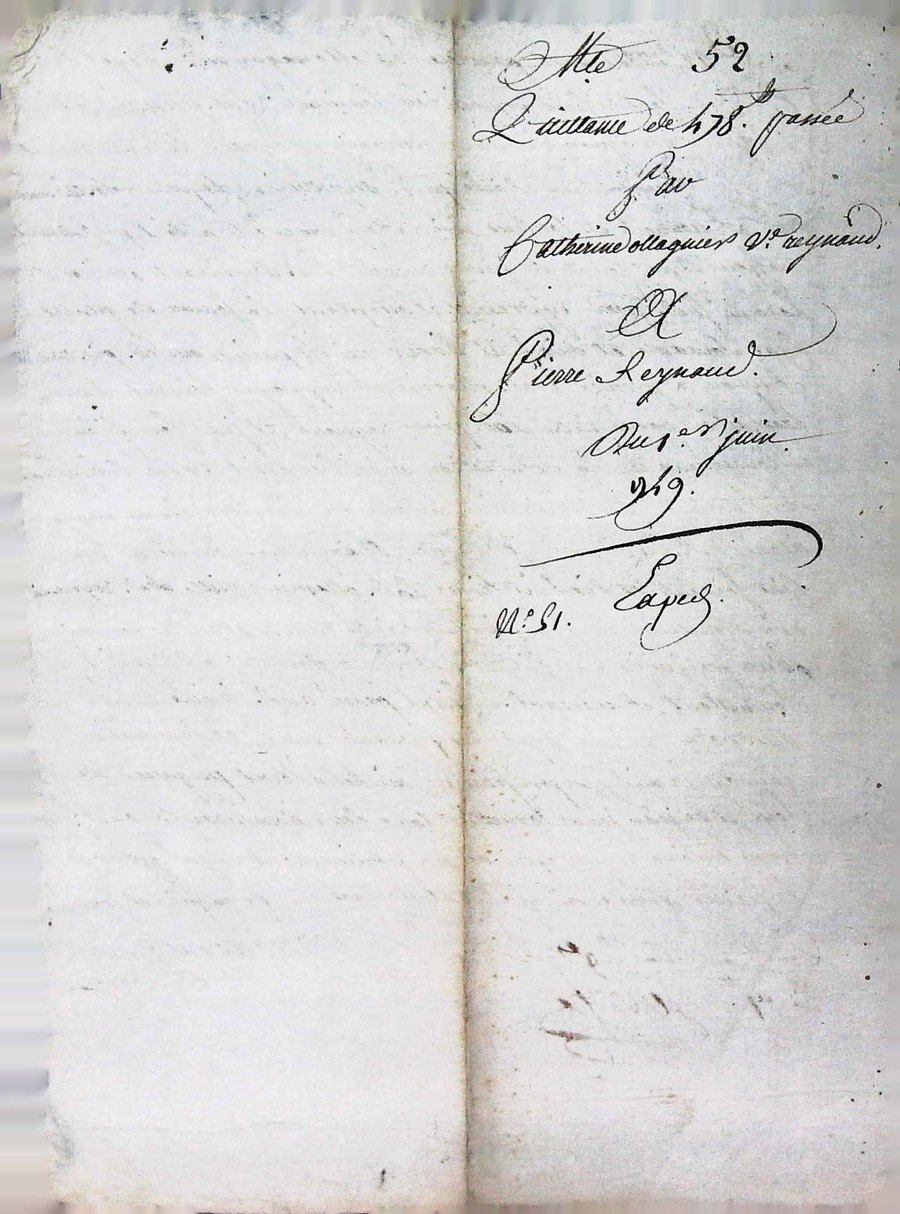 52
Quittance de 478.ᵗᵗ passée
Par
Catherine ollagnier Vᵉ. reynaud.
A
Pierre Reynaud.
Du 1ᵉʳ juin
1749.
N.º 51.